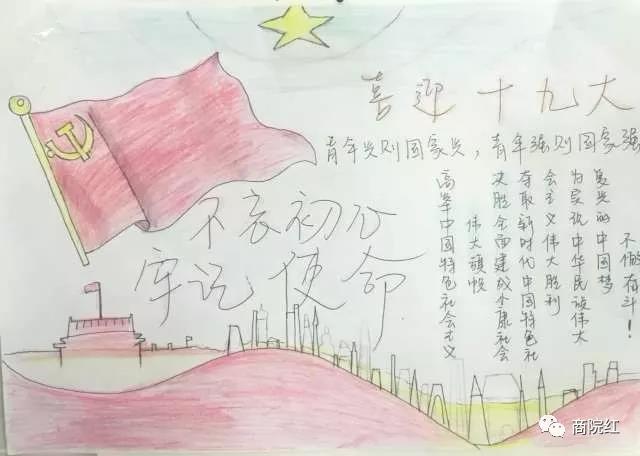 喜迎十九大
青年兴则国家兴，青年强则国家强
不忘初心
牢记使命
高举中国特色社会主义
伟大旗帜
决胜全面建成小康社会
夺取新时代中国特色社
会主义伟大胜利
为实现中华民族伟大
复兴的中国梦
不懈奋斗！
商院红